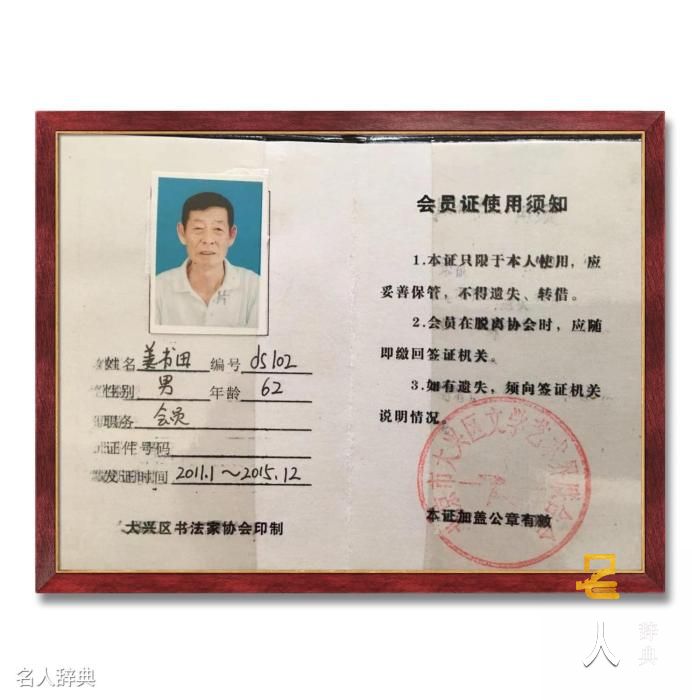 姓名 姜书田 编号 ds102
性别 男 年龄 62
职务 会员
证件号码
发证时间 2011.1～2015.12
大兴区书法家协会印制
会员证使用须知
1.本证只限于本人使用，应
妥善保管，不得遗失、转借。
2.会员在脱离协会时，应随
即缴回签证机关。
3.如有遗失，须向签证机关
说明情况。
北京市大兴区文学艺术界联合会
本证加盖公章有效
名人辞典
名人辞典